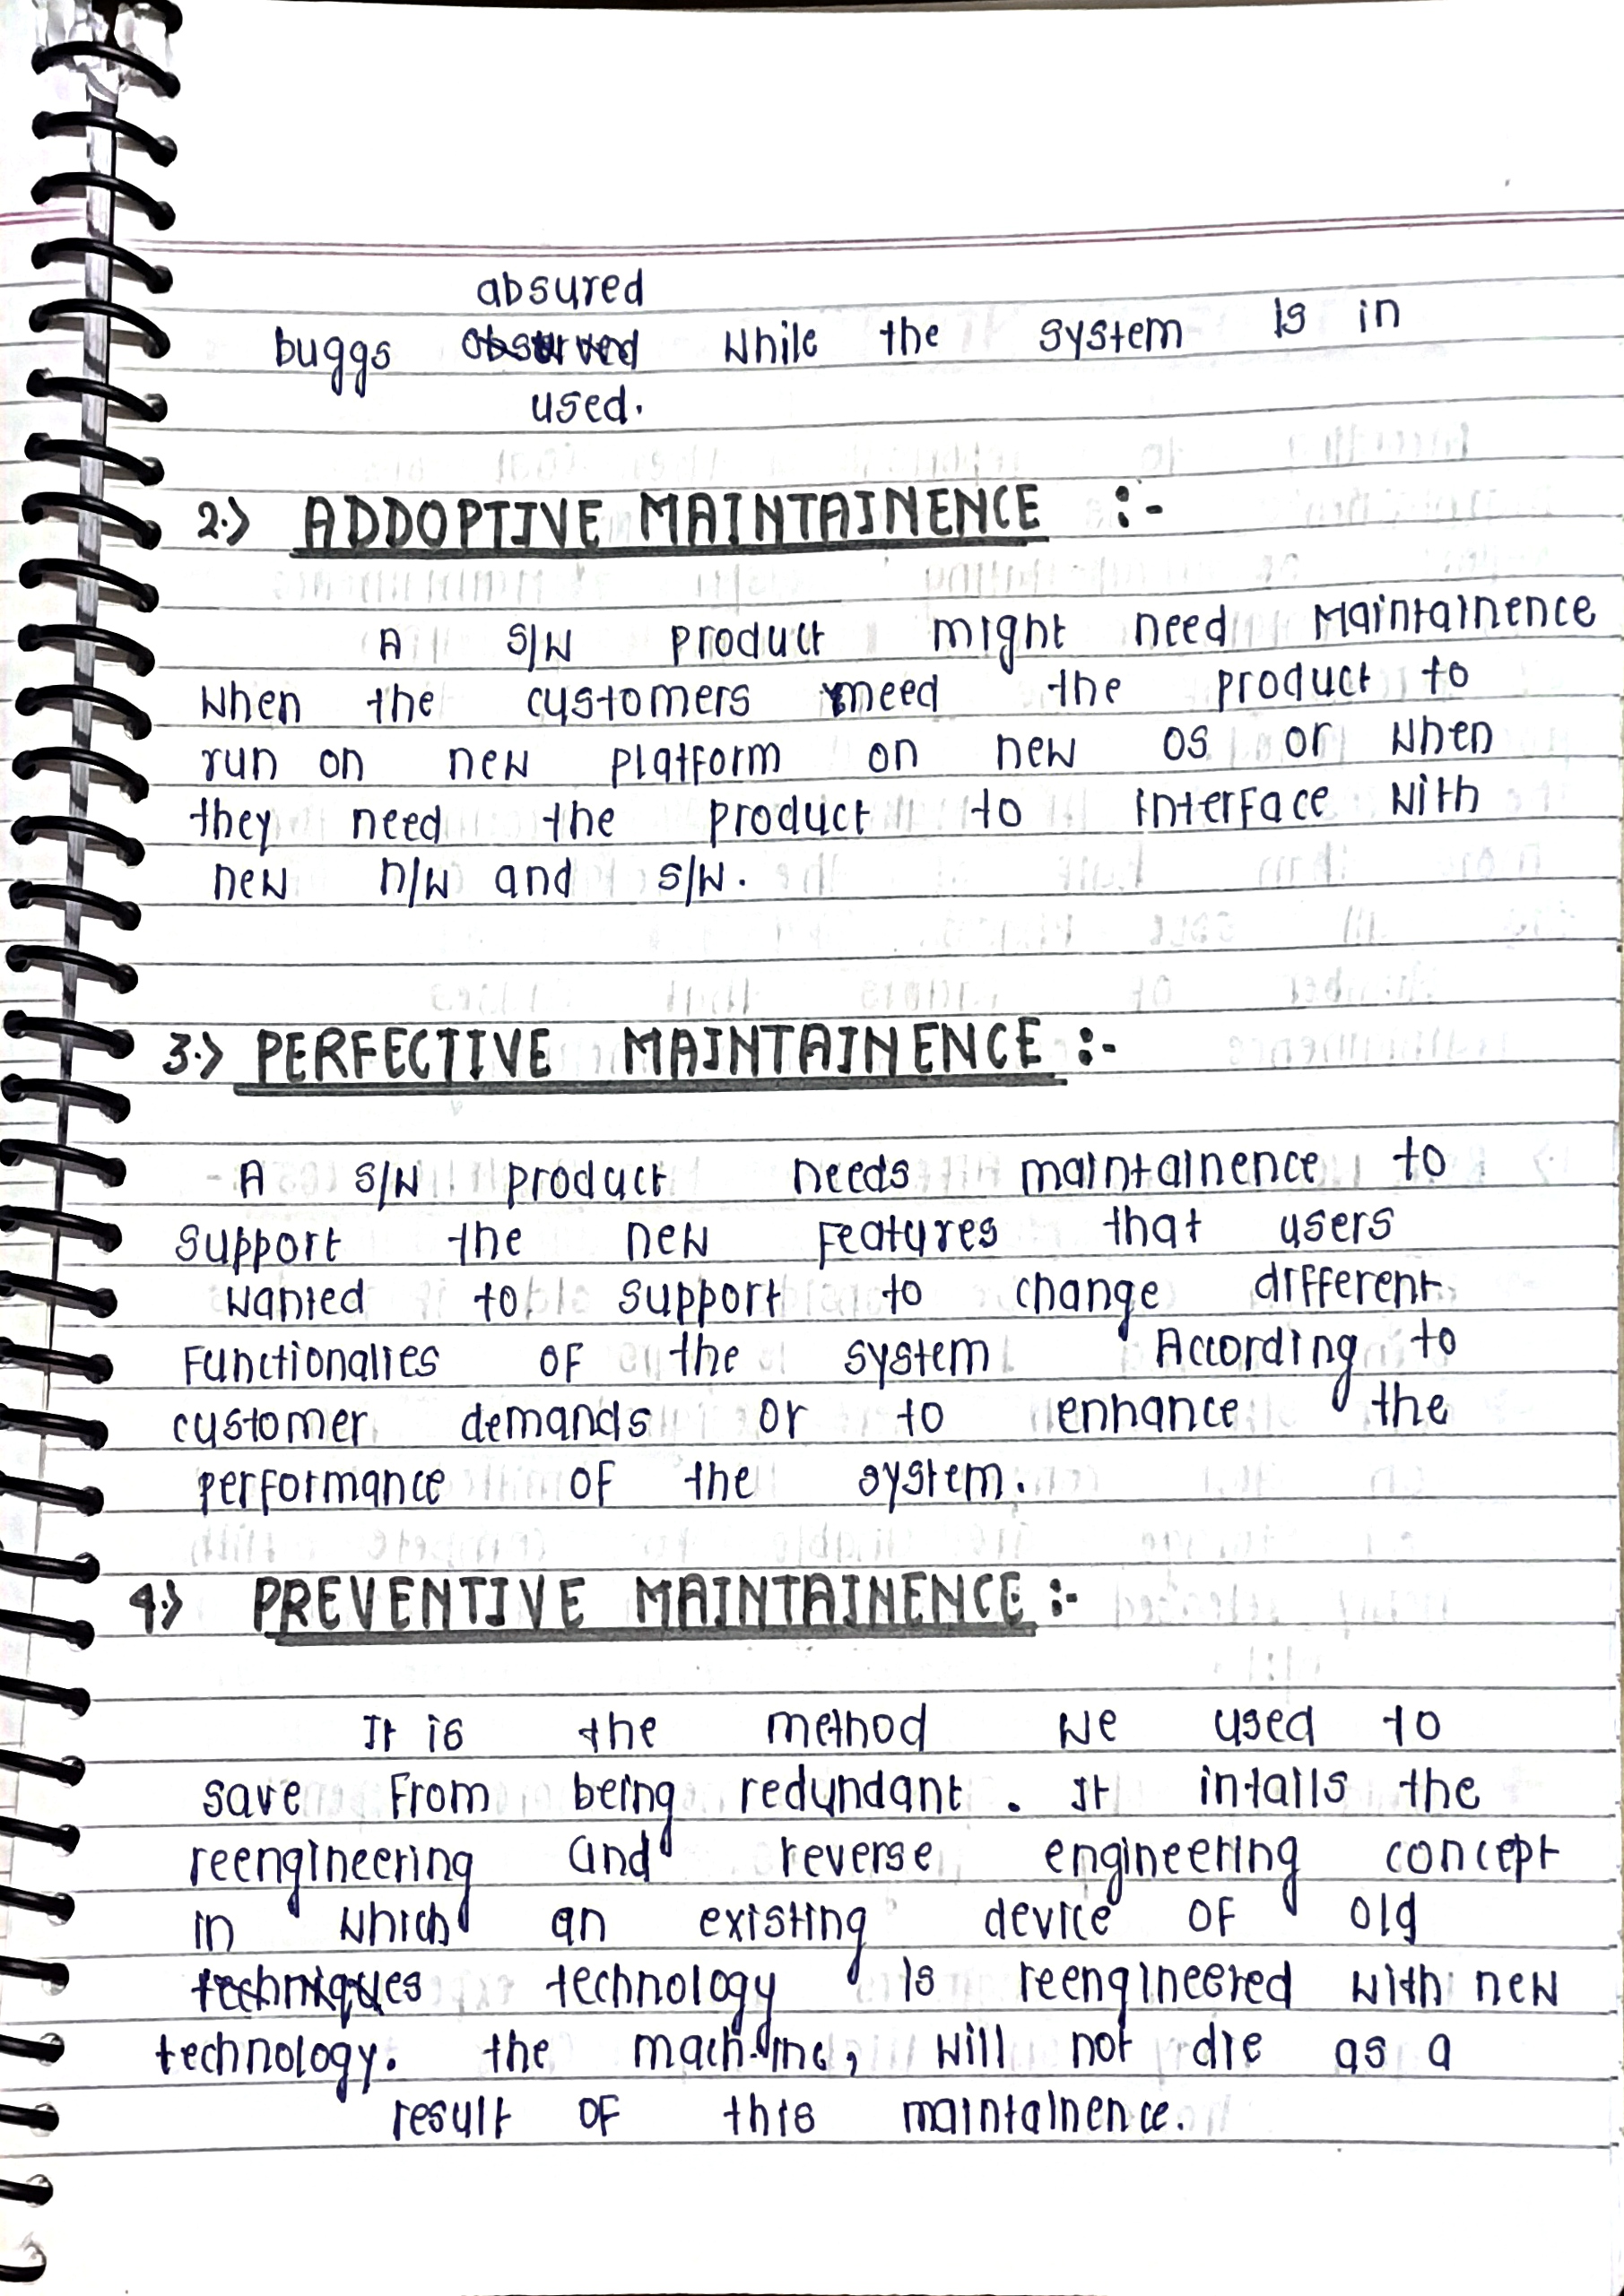 absured
buggs observed while the system is in
used.
2.> ADDOPTIVE MAINTAINENCE :-
A S/W product might need Maintainence
when the customers need the product to
run on new platform on new OS or when
they need the product to interface with
new n/w and s/w.
3.> PERFECTIVE MAINTAINENCE :-
A S/W product needs maintainence to
support the new features that users
wanted to support to change different
functionalies of the system According to
customer demands or to enhance the
performance of the system.
4.> PREVENTIVE MAINTAINENCE :-
It is the method we used to
save from being redundant. It intails the
reengineering and reverse engineering concept
in which an existing device of old
techniques technology is reengineered with new
technology. the machine, will not die as a
result of this maintainence.